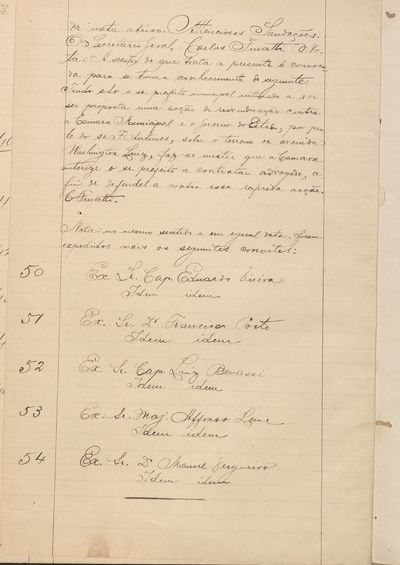 da nota abaixo. Attenciosas Saudações.
O Secretario Geral, Carlos Tinatti. No-
ta: A sessão de que trata a presente é convoca-
da para se tomar conhecimento do seguinte:
Tendo sido o sr. prefeito municipal intimado a ser
ser proposta uma acção de reivindicação contra
a Camara Municipal e o governo do Estado, por par-
te do sr. F. Antunes, sobre o terreno na avenida
Washington Luiz, faz-se mister que a Camara
autorize o sr. prefeito a contratar advogado, a
fim de defendel-a contra essa referida acção.
C. Tinatti.
Nota: no mesmo sentido e em egual data foram
expedidos mais os seguintes convites:
50 Ex. Sr. Cap. Eduardo Vieira
Idem idem
51 Ex. Sr. Dr Francisco Porto
Idem idem
52 Ex. Sr. Cap. Luiz Benassi
Idem idem
53 Ex. Sr. Maj. Affonso Leme
Idem idem
54 Ex. Sr. Dr Manoel Vergueiro
Idem idem